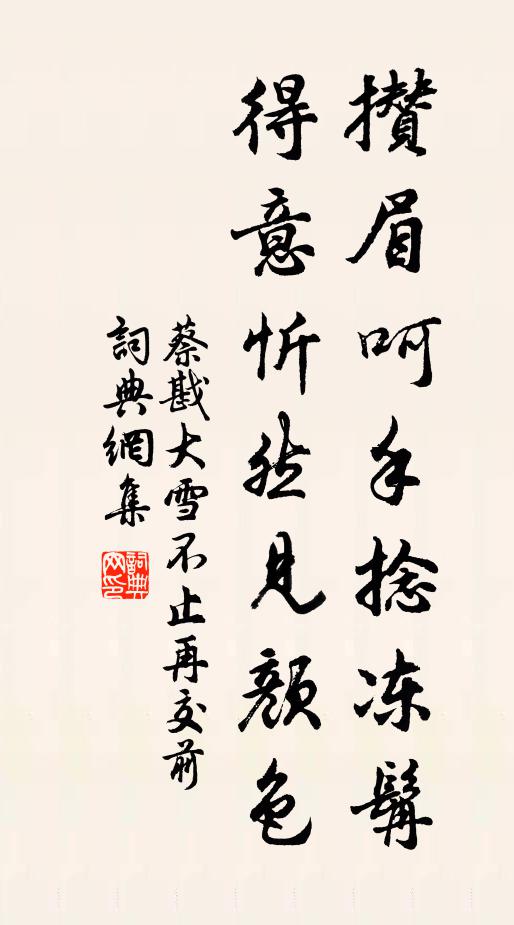 攢眉呵手捻冻髯
得意忻然見顏色
蔡戡大雪不止再交前
詞典網集
詞典網印